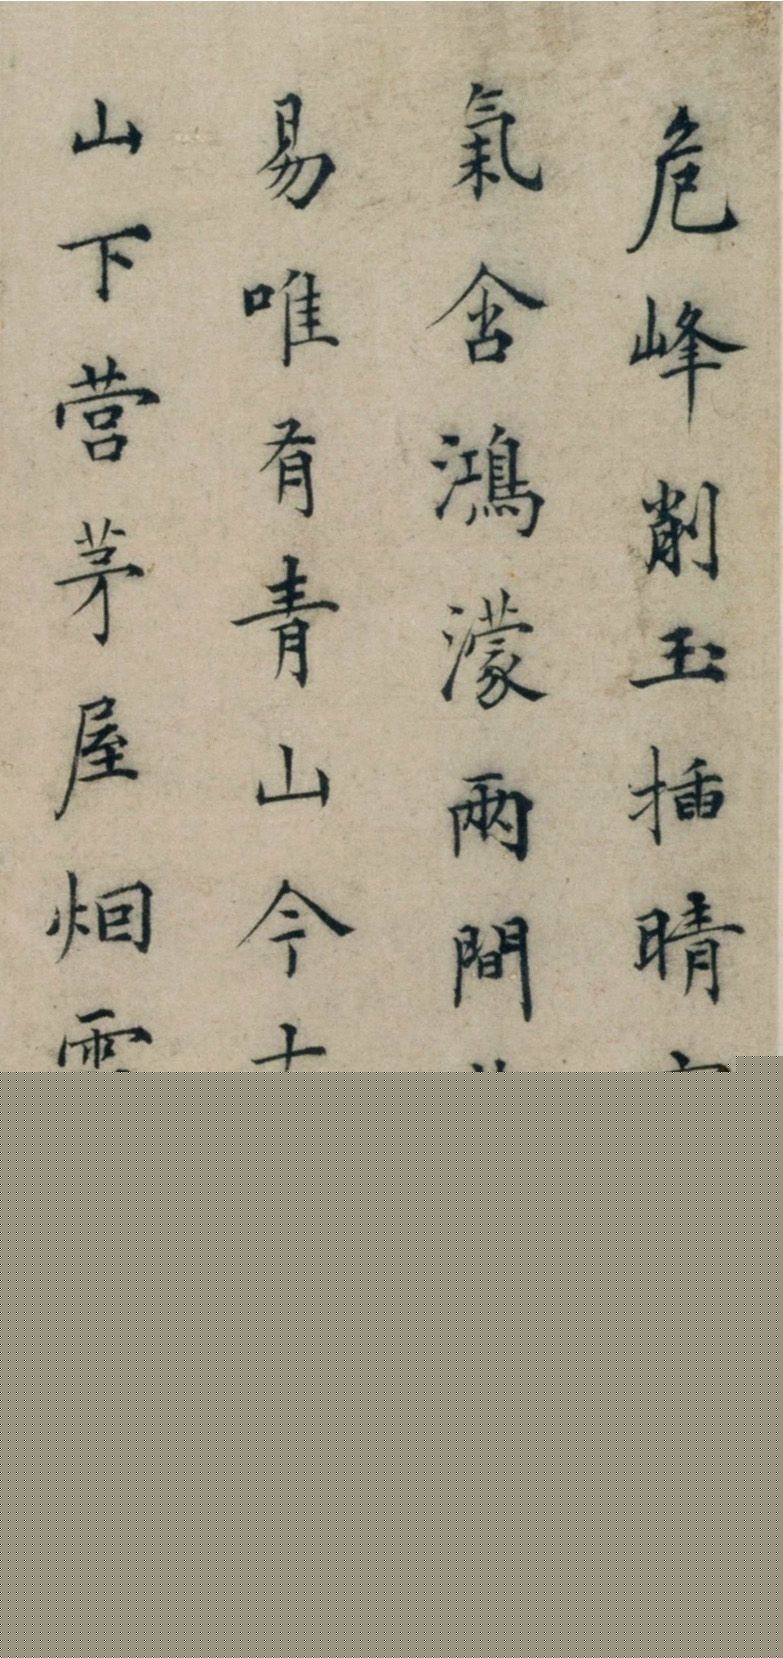 危峰削玉插晴
氣含鴻濛兩間
易唯有青山今
山下營茅屋烟